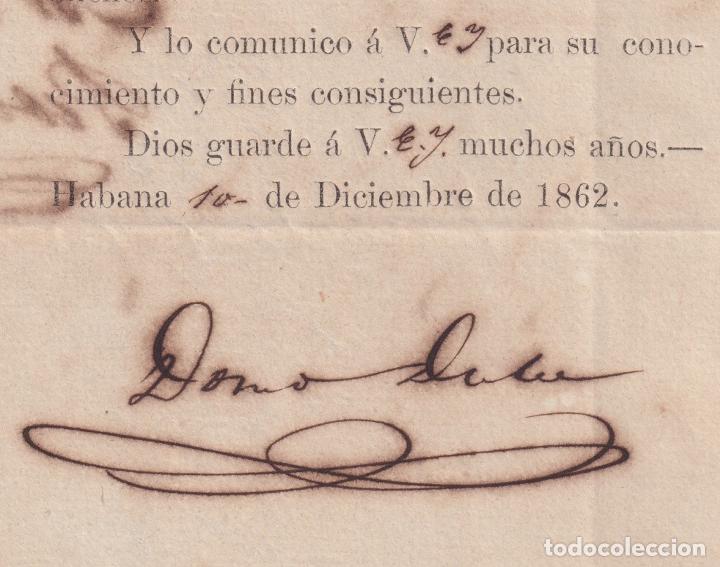 Y lo comunico á V. E. Y para su cono-
cimiento y fines consiguientes.
Dios guarde á V. E. Y. muchos años.—
Habana 10- de Diciembre de 1862.
Domo Dulce
todocoleccion
todocoleccion.net